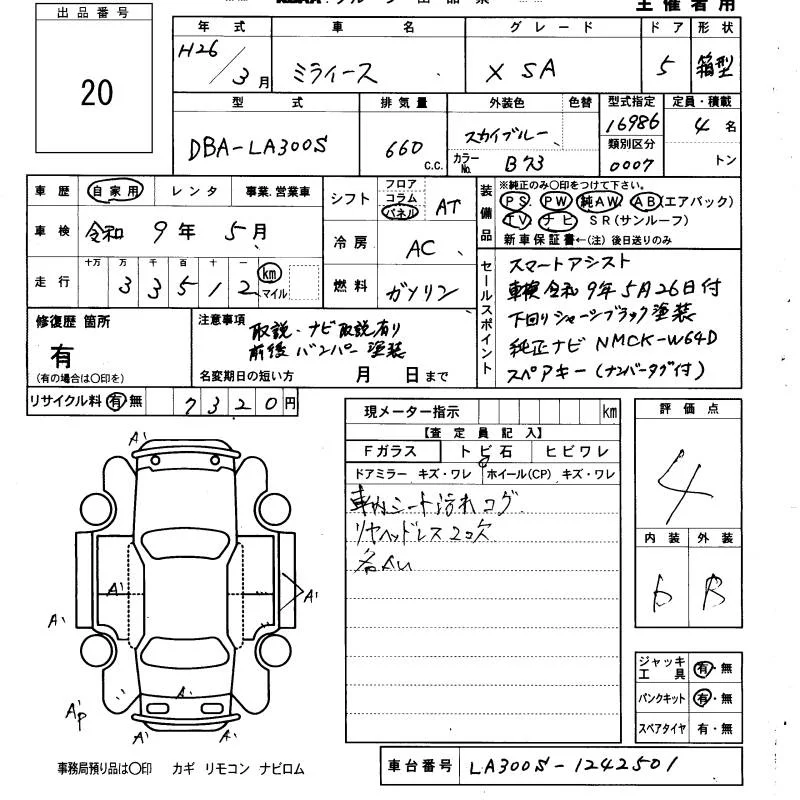 出品番号
20
主催者用
年式 車名 グレード ドア 形状
H26/3月 ミライース X SA 5 箱型
型式 排気量 外装色 色替 型式指定 定員・積載
DBA-LA300S 660 c.c. スカイブルー 16986 4名
カラーNo. B73 類別区分 0007 トン
車歴 自家用 レンタ 事業.営業車
車検 令和 9年 5月
走行 十万 万 千 百 十 一 km マイル
33512
シフト フロア コラム パネル AT
冷房 AC
燃料 ガソリン
装備品 ※純正のみ〇印をつけて下さい。
PS PW 純AW AB(エアバック)
TV ナビ SR(サンルーフ)
新車保証書←(注) 後日送りのみ
セールスポイント
スマートアシスト
車検令和9年5月26日付
下回りシャーシブラック塗装
純正ナビ NMCK-W64D
スペアキー(ナンバータグ付)
修復歴 箇所
有
(有の場合は〇印を)
注意事項
取説・ナビ取説有り
前後バンパー塗装
名変期日の短い方 月 日まで
リサイクル料 有 無 7320円
現メーター指示 km
【査定員記入】
Fガラス トビ石 ヒビワレ
ドアミラー キズ・ワレ ホイール(CP) キズ・ワレ
車内シート汚れコゲ
リヤヘッドレス2コ欠
評価点
4
内装 外装
b B
A'
A'
A'
A'
A'
A'p
A'
A'
ジャッキ工具 有・無
パンクキット 有・無
スペアタイヤ 有・無
事務局預り品は〇印 カギ リモコン ナビロム
車台番号 LA300S-1242501